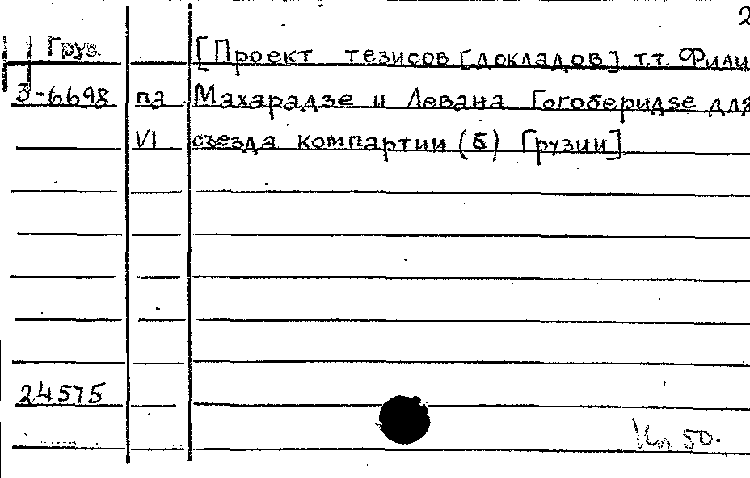 2
Груз. [Проект тезисов [докладов] т.т. Фили
3-6698 па Махарадзе и Левана Гогоберидзе для
VI съезда компартии (б) Грузии]
24575
50.